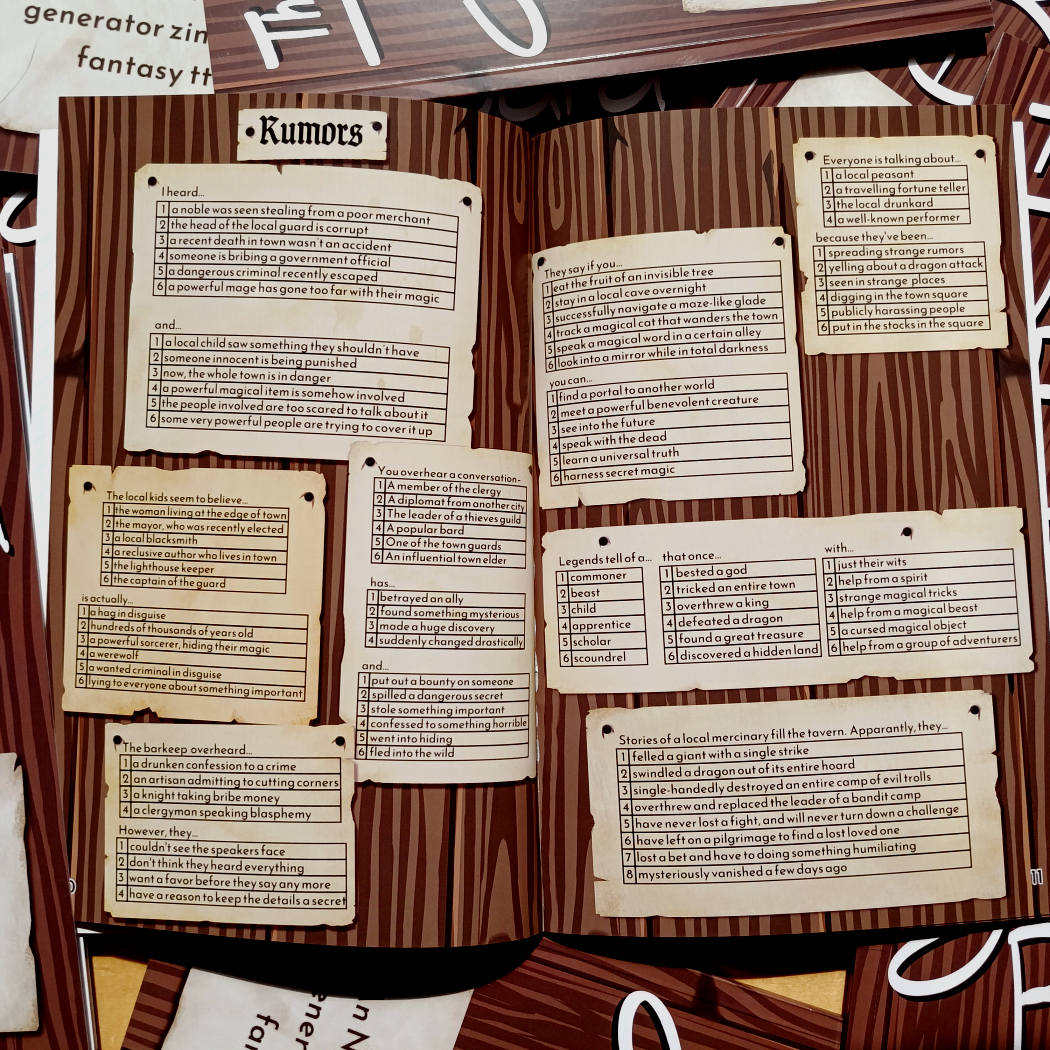 generator zin
fantasy tt
Rumors
I heard...
1 a noble was seen stealing from a poor merchant
2 the head of the local guard is corrupt
3 a recent death in town wasn't an accident
4 someone is bribing a government official
5 a dangerous criminal recently escaped
6 a powerful mage has gone too far with their magic
and...
1 a local child saw something they shouldn't have
2 someone innocent is being punished
3 now, the whole town is in danger
4 a powerful magical item is somehow involved
5 the people involved are too scared to talk about it
6 some very powerful people are trying to cover it up
The local kids seem to believe...
1 the woman living at the edge of town
2 the mayor, who was recently elected
3 a local blacksmith
4 a reclusive author who lives in town
5 the lighthouse keeper
6 the captain of the guard
is actually...
1 a hag in disguise
2 hundreds of thousands of years old
3 a powerful sorcerer, hiding their magic
4 a werewolf
5 a wanted criminal in disguise
6 lying to everyone about something important
You overhear a conversation-
1 A member of the clergy
2 A diplomat from another city
3 The leader of a thieves guild
4 A popular bard
5 One of the town guards
6 An influential town elder
has...
1 betrayed an ally
2 found something mysterious
3 made a huge discovery
4 suddenly changed drastically
and...
1 put out a bounty on someone
2 spilled a dangerous secret
3 stole something important
4 confessed to something horrible
5 went into hiding
6 fled into the wild
The barkeep overheard...
1 a drunken confession to a crime
2 an artisan admitting to cutting corners
3 a knight taking bribe money
4 a clergyman speaking blasphemy
However, they...
1 couldn't see the speakers face
2 don't think they heard everything
3 want a favor before they say any more
4 have a reason to keep the details a secret
They say if you...
1 eat the fruit of an invisible tree
2 stay in a local cave overnight
3 successfully navigate a maze-like glade
4 track a magical cat that wanders the town
5 speak a magical word in a certain alley
6 look into a mirror while in total darkness
you can...
1 find a portal to another world
2 meet a powerful benevolent creature
3 see into the future
4 speak with the dead
5 learn a universal truth
6 harness secret magic
Everyone is talking about...
1 a local peasant
2 a travelling fortune teller
3 the local drunkard
4 a well-known performer
because they've been...
1 spreading strange rumors
2 yelling about a dragon attack
3 seen in strange places
4 digging in the town square
5 publicly harassing people
6 put in the stocks in the square
Legends tell of a...
1 commoner
2 beast
3 child
4 apprentice
5 scholar
6 scoundrel
that once...
1 bested a god
2 tricked an entire town
3 overthrew a king
4 defeated a dragon
5 found a great treasure
6 discovered a hidden land
with...
1 just their wits
2 help from a spirit
3 strange magical tricks
4 help from a magical beast
5 a cursed magical object
6 help from a group of adventurers
Stories of a local mercinary fill the tavern. Apparantly, they...
1 felled a giant with a single strike
2 swindled a dragon out of its entire hoard
3 single-handedly destroyed an entire camp of evil trolls
4 overthrew and replaced the leader of a bandit camp
5 have never lost a fight, and will never turn down a challenge
6 have left on a pilgrimage to find a lost loved one
7 lost a bet and have to doing something humiliating
8 mysteriously vanished a few days ago
11